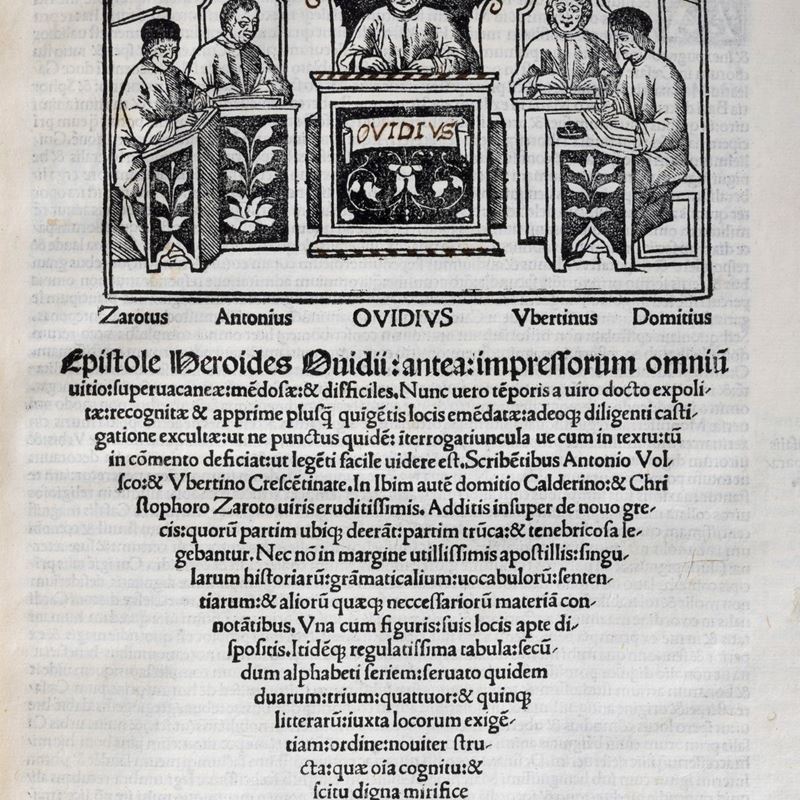 OVIDIVS
Zarotus Antonius OVIDIVS Vbertinus Domitius
Epistole Heroides Ouidii:antea:impressorum omniũ
uitio:superuacaneæ:mẽdosæ:& difficiles.Nunc uero tẽporis a uiro docto expoli-
tæ:recognitæ & apprime plusq̃ quigẽtis locis emẽdatæ:adeoq; diligenti casti-
gatione excultæ:ut ne punctus quidẽ: ĩterrogatiuncula ue cum in textu:tũ
in cõmento deficiat:ut legẽti facile uidere est.Scribẽtibus Antonio Vol-
sco:& Vbertino Crescẽtinate.In Ibim autẽ domitio Calderino:& Chri
stophoro Zaroto uiris eruditissimis. Additis insuper de nouo gre-
cis:quorũ partim ubiq; deerãt:partim trũca:& tenebricosa le-
gebantur. Nec nõ in margine utillissimis apostillis:singu-
larum historiarũ:grãmaticalium:uocabulorũ:senten-
tiarum:& aliorũ quæq; neccessariorũ materiã con-
notãtibus. Vna cum figuris:suis locis apte di-
spositis. Itidẽq; regulatissima tabula:secũ-
dum alphabeti seriem:seruato quidem
duarum:trium:quattuor:& quinq;
litterarũ:iuxta locorum exigẽ-
tiam:ordine:nouiter stru-
cta:quæ oĩa cognitu:&
scitu digna mirifice